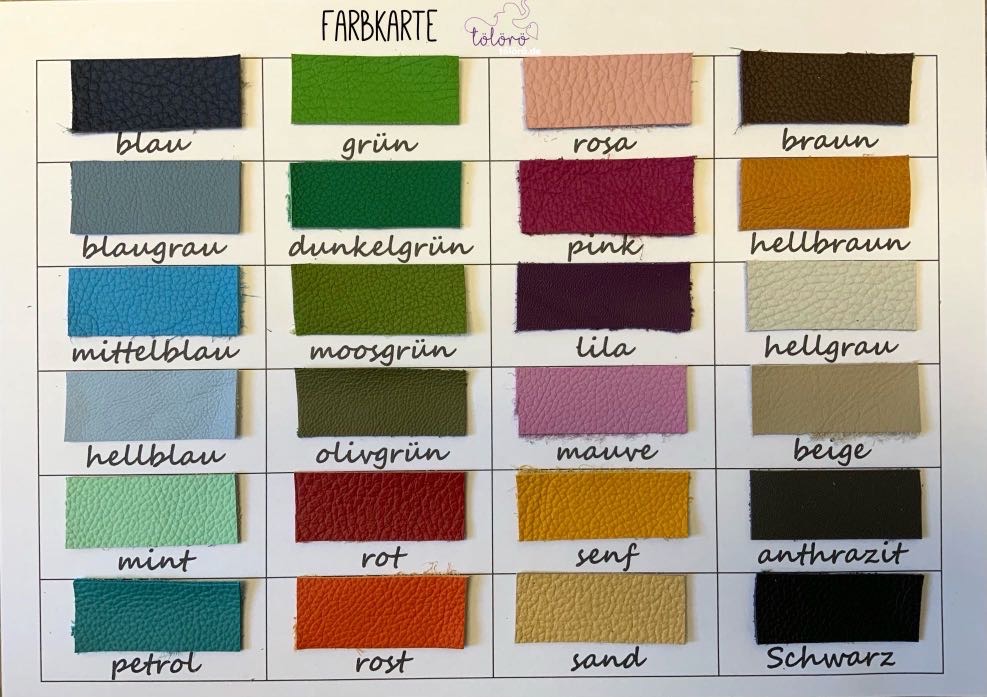 FARBKARTE
tölörö
toloro.de
blau grün rosa braun
blaugrau dunkelgrün pink hellbraun
mittelblau moosgrün lila hellgrau
hellblau olivgrün mauve beige
mint rot senf anthrazit
petrol rost sand Schwarz